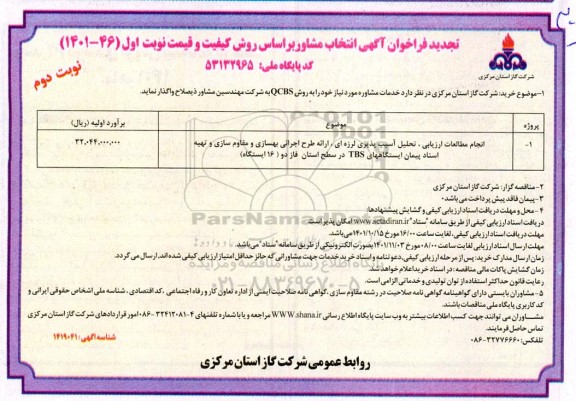 تجدید فراخوان آگهی انتخاب مشاور براساس روش کیفیت و قیمت نوبت اول (۴۶-۱۴۰۱)
کد پایگاه ملی: ۵۳۱۳۲۹۶۵
نوبت دوم
شرکت گاز استان مرکزی
۱-موضوع خرید: شرکت گاز استان مرکزی در نظر دارد خدمات مشاوره مورد نیاز خود را به روش QCBS به شرکت مهندسین مشاور ذیصلاح واگذار نماید.
پروژه موضوع برآورد اولیه (ریال)
۱- انجام مطالعات ارزیابی ، تحلیل آسیب پذیری لرزه ای ، ارائه طرح اجرائی بهسازی و مقاوم سازی و تهیه ۳۲,۰۴۴,۰۰۰,۰۰۰
اسناد پیمان ایستگاههای TBS در سطح استان فاز دو ( ۱۶ ایستگاه)
۲-مناقصه گزار: شرکت گاز استان مرکزی
۳-پیمان فاقد پیش پرداخت می باشد.
۴-محل و مهلت دریافت اسناد ارزیابی کیفی و گشایش پیشنهادها:
دریافت اسناد ارزیابی کیفی از طریق سامانه "ستاد" www.setadiran.ir امکان پذیر است.
مهلت دریافت اسناد ارزیابی کیفی، لغایت ساعت ۱۶/۰۰ مورخ ۱۴۰۱/۱۰/۱۵ می باشد.
مهلت ارسال اسناد ارزیابی لغایت ساعت ۰۸/۰۰ مورخ ۱۴۰۱/۱۱/۰۳ بصورت الکترونیکی از طریق سامانه "ستاد" می باشد.
زمان ارسال مدارک خرید: پس از مرحله ارزیابی کیفی، دعوتنامه و اسناد خرید خدمات جهت مشاورانی که حائز حداقل امتیاز ارزیابی کیفی شده اند، ارسال می گردد.
زمان گشایش پاکات مالی مناقصه: در اسناد خرید اعلام خواهد شد.
رعایت قانون حداکثر استفاده از توان تولیدی و خدماتی الزامی است.
۵- مشاوران بایستی دارای گواهینامه گواهی نامه صلاحیت در رشته مقاوم سازی ، گواهی نامه صلاحیت ایمنی از اداره تعاون کار و رفاه اجتماعی ، کد اقتصادی ، شناسه ملی اشخاص حقوقی ایرانی و
کد کاربری پایگاه ملی مناقصات باشند.
مشاوران می توانند جهت کسب اطلاعات بیشتر به وب سایت پایگاه اطلاع رسانی WWW.shana.ir مراجعه و یا با شماره تلفنهای ۴-۳۳۴۱۲۰۸۱-۰۸۶ امور قراردادهای شرکت گاز استان مرکزی
تماس حاصل فرمایند.
تلفکس: ۳۲۷۷۶۶۶۰-۰۸۶
شناسه آگهی: ۱۴۱۹۰۴۱
روابط عمومی شرکت گاز استان مرکزی
ParsNamadData
پایگاه اطلاع رسانی مناقصه و مزایده
۰۲۱-۸۸۳۴۹۶۷۰-۵